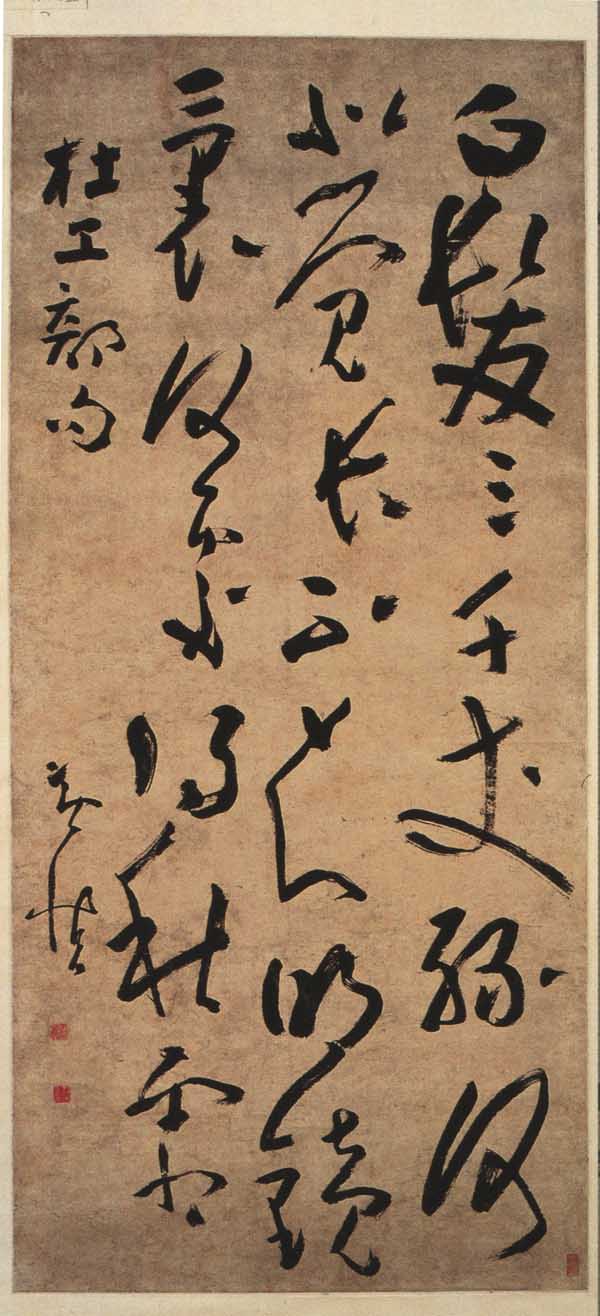 白髮三千丈緣何
似覺長不知明鏡
裏何處得秋霜
杜工部句
黃慎